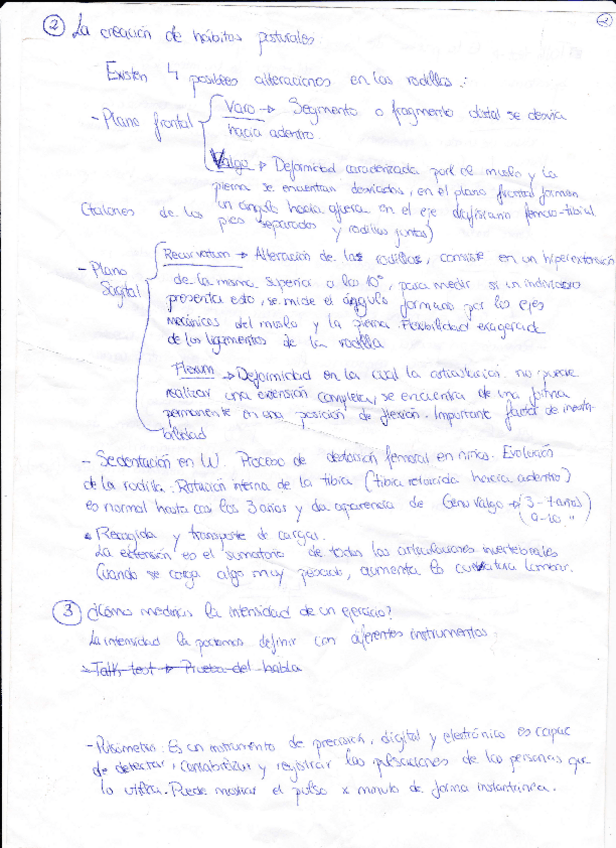 2
② La creación de hábitos posturales:
Existen 4 posibles alteraciones en las rodillas:
- Plano frontal
Varo → Segmento o fragmento distal se desvia
hacia adentro.
Valgo → Deformidad caracterizada porq el muslo y la
pierna se encuentran desviados, en el plano frontal forman
un ángulo hacia afuera en el eje diafisiario femoro-tibial
(talones de los pies separados y rodillas juntas)
- Plano Sagital
Recurvatum → Alteración de las rodillas, consiste en un hiperextensión
de la misma superior a los 10°, para medir si un individuo
presenta esto, se mide el ángulo formano por los ejes
mecánicos del muslo y la pierna. Flexibilidad exagerada
de los ligamentos de la rodilla
Flexum → Deformidad en la cual la articulación no puede
realizar una extensión completa, se encuentra de una forma
permanente en una posición de flexión. Important factor de inesta-
bilidad
- Sedentación en W. Proceso de femoral en niños. Evolución
de la rodilla: Rotación interna de la tibia (tibia retorcida hacia adentro)
es normal hasta con los 3 años y da apariencia de Genu Valgo → (3-7 años)
(9-10 ")
• Recogida y transporte de cargas.
La extensión es el sumatorio de todas las articulaciones invertebrales
Cuando se carga algo muy pesado, aumenta la curvatura lumbar.
③ ¿Cómo medirías la intensidad de un ejercicio?
La intensidad la podemos definir con diferentes instrumentos:
→ Talk test → Prueba del habla
- Pulsómetro: Es un instrumento de precisión, digital y electrónico es capac
de detectar, contabilizar y registrar las pulsaciones de las personas que
lo utiliza. Puede mostrar el pulso x minuto de forma instantánea.